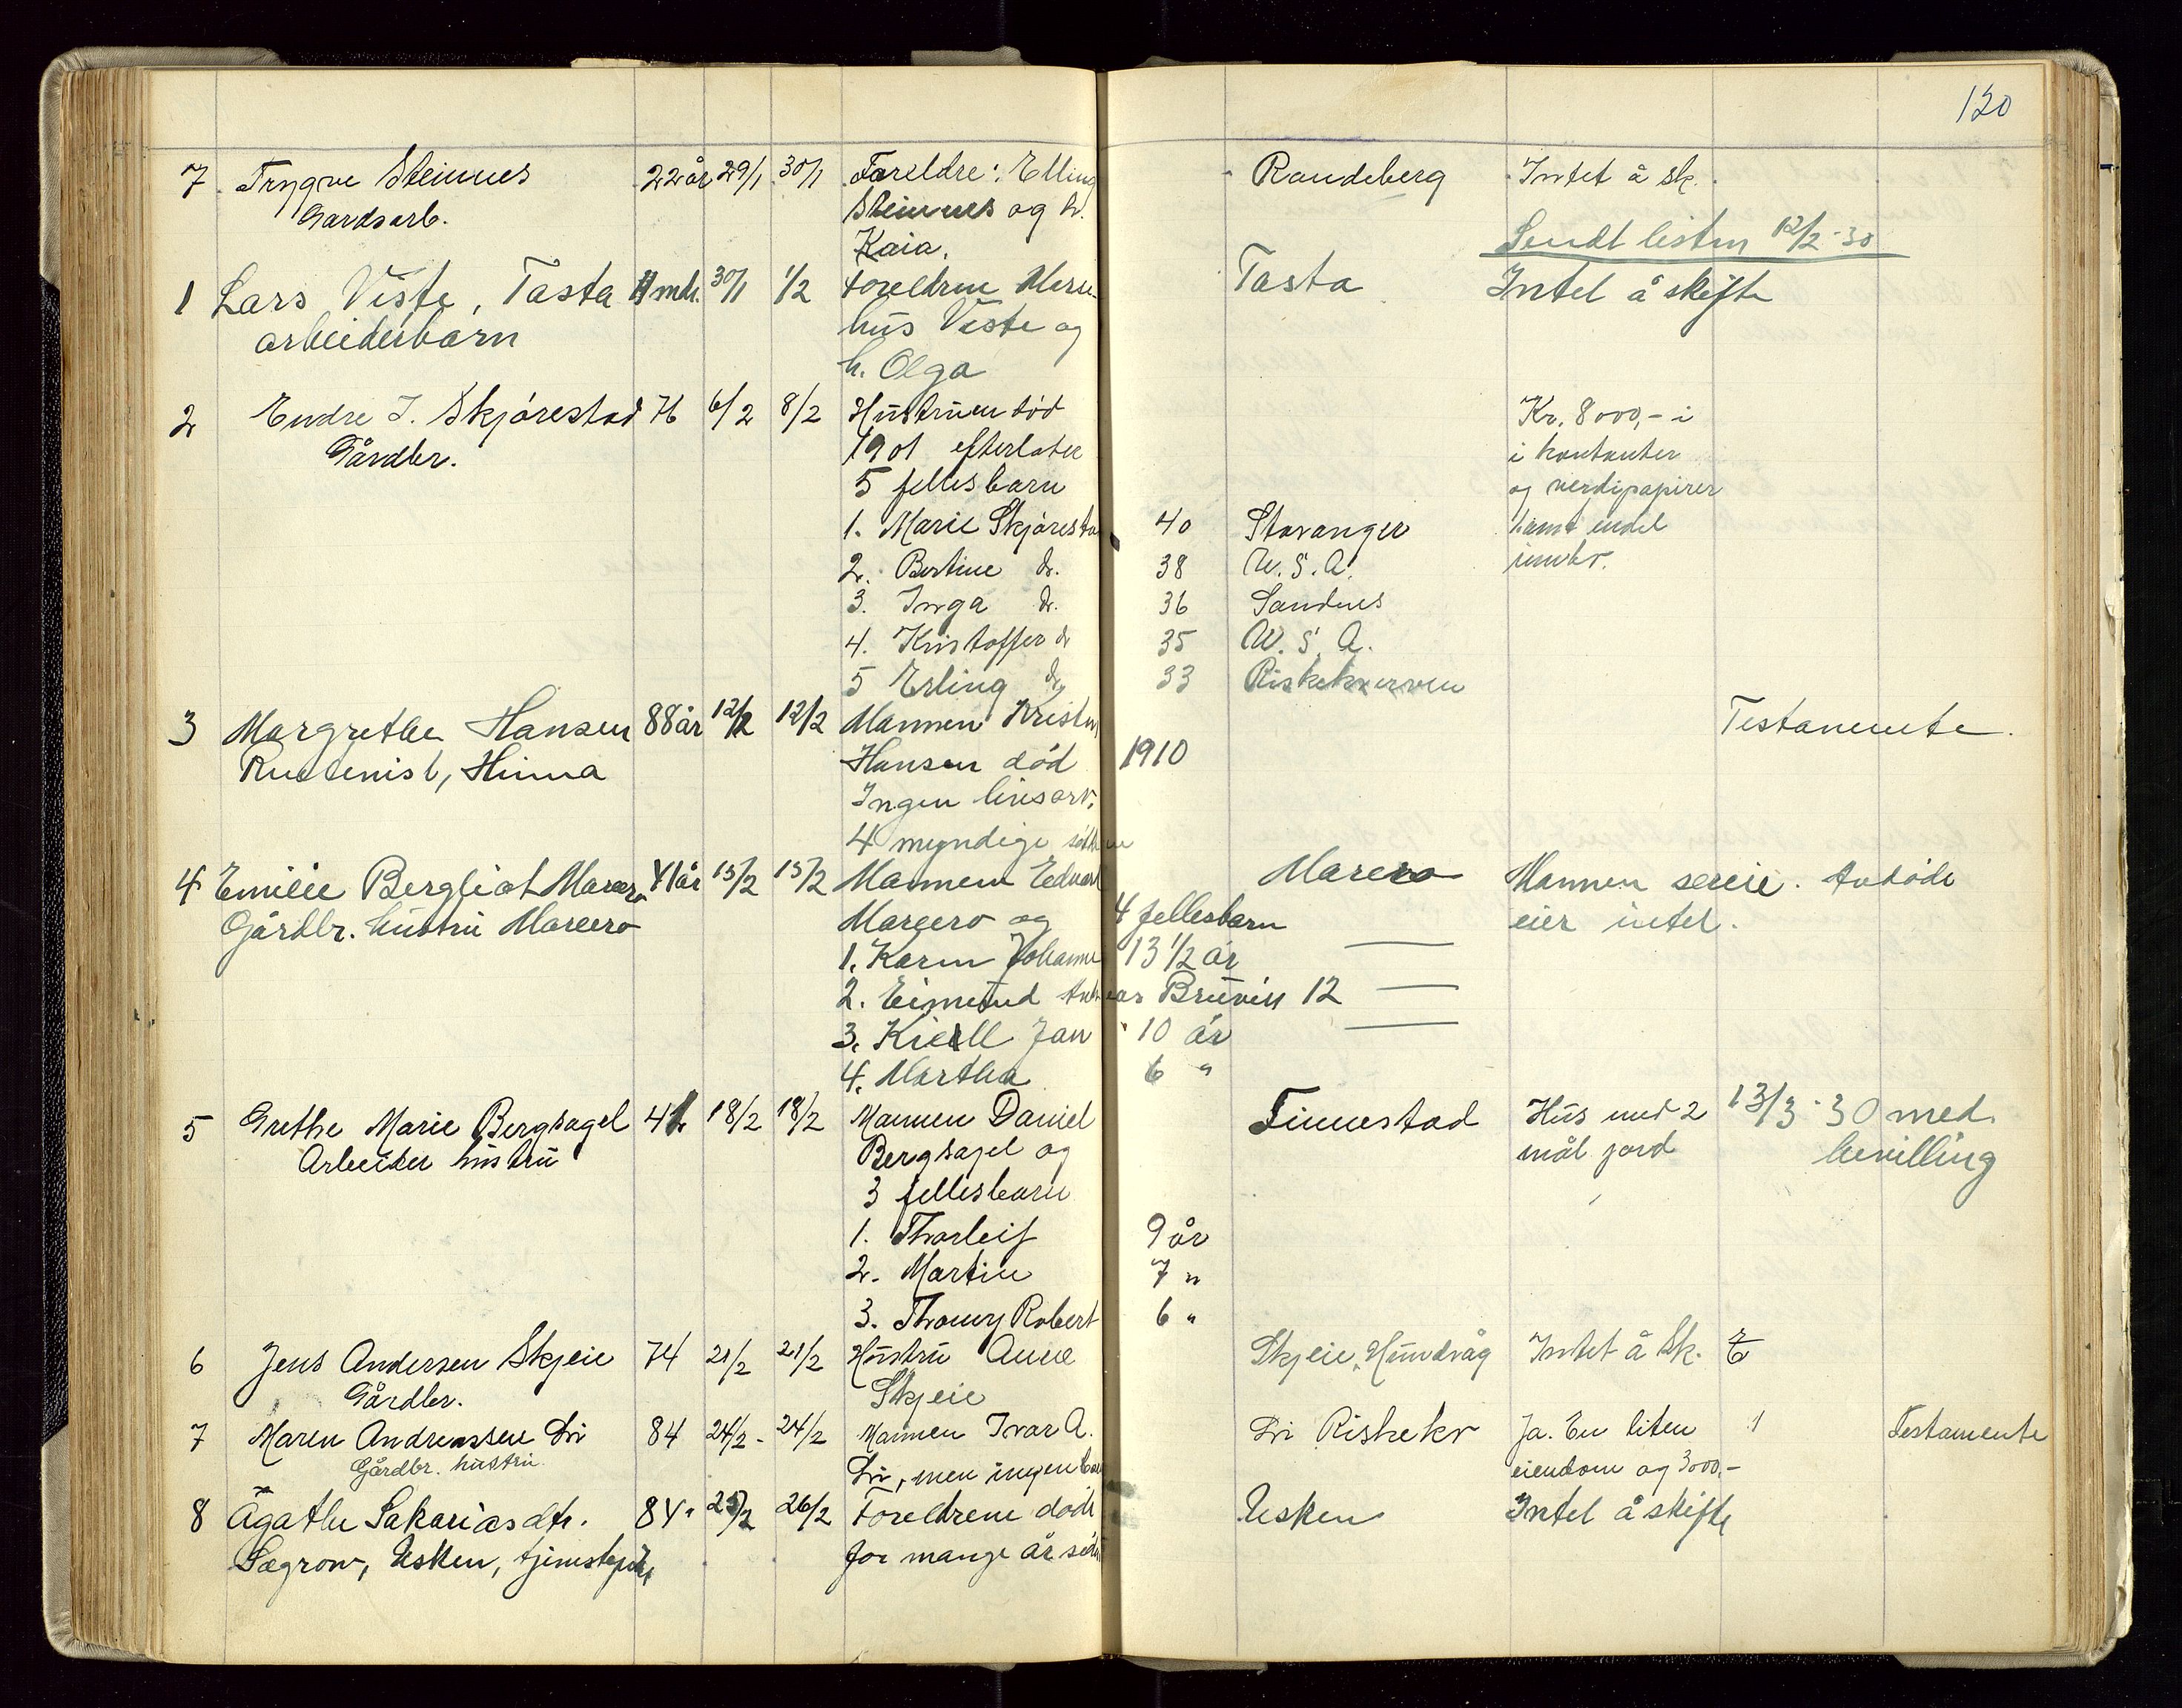 120
7 Trygve Steinnes 22 år 29/1 30/1 Foreldre: Elling Randeberg Intet å sk.
Gardsarb. Steinnes og h.
Kaia. Sendt listen 12/2-30
1 Lars Viste, Tasta 4 mdr. 30/1 1/2 Foreldrene Tasta Intet å skifte
arbeiderbarn hus Viste og
h. Olga
2 Endre J. Skjørestad 76 6/2 8/2 Hustruen død Kr. 8000,- i
Gårdbr. 1901 efterlater i kontanter
5 fellesbarn og verdipapirer
1. Marie Skjøresta 40 Stavanger samt endel
2. Bertine do. 38 U.S.A. innbr.
3. Inga do. 36 Sandnes
4. Kristoffer do 35 U.S.A.
5 Erling do 33 Riskekverven
3 Margrethe Hansen 88 år 12/2 12/2 Mannen Kristen Testamente.
Hinna Hansen død 1910
Ingen livsarv.
4 myndige
4 Emilie Bergliot Marero 41 år 15/2 15/2 Mannen Edvard Marero Mannen sereie. Avdøde
Gårdbr. hustru Marero Marero og 4 fellesbarn eier intet.
1. Karen Johanne 13 1/2 år —
2. Eimund Bruvik 12 —
3. Kiell Jan 10 år —
4. Martha 6 "
5 Grethe Marie Bergsagel 41 18/2 18/2 Mannen Daniel Finnestad Hus med 2 13/3-30 med
Arbeider hustru Bergsagel og mål jord bevilling
3 fellesbarn
1. Thorleif 9 år
2. Martin 7 "
3. Thomy Robert 6 "
6 Jens Andersen Skjeie 74 21/2 21/2 Hustru Anna Skjeie, Hundvåg Intet å Sk.
Gårdbr. Skjeie
7 Maren Andreassen Li 84 24/2 - 24/2 Mannen Ivar A. Li Riskekv Ja. En liten 1 Testamente
Gårdbr. hustru Li, men ingen barn eiendom og 3000,-
8 Agathe Sakariasdtr. 84 25/2 26/2 Foreldrene døde Usken Intet å skifte
Usken, for mange år siden